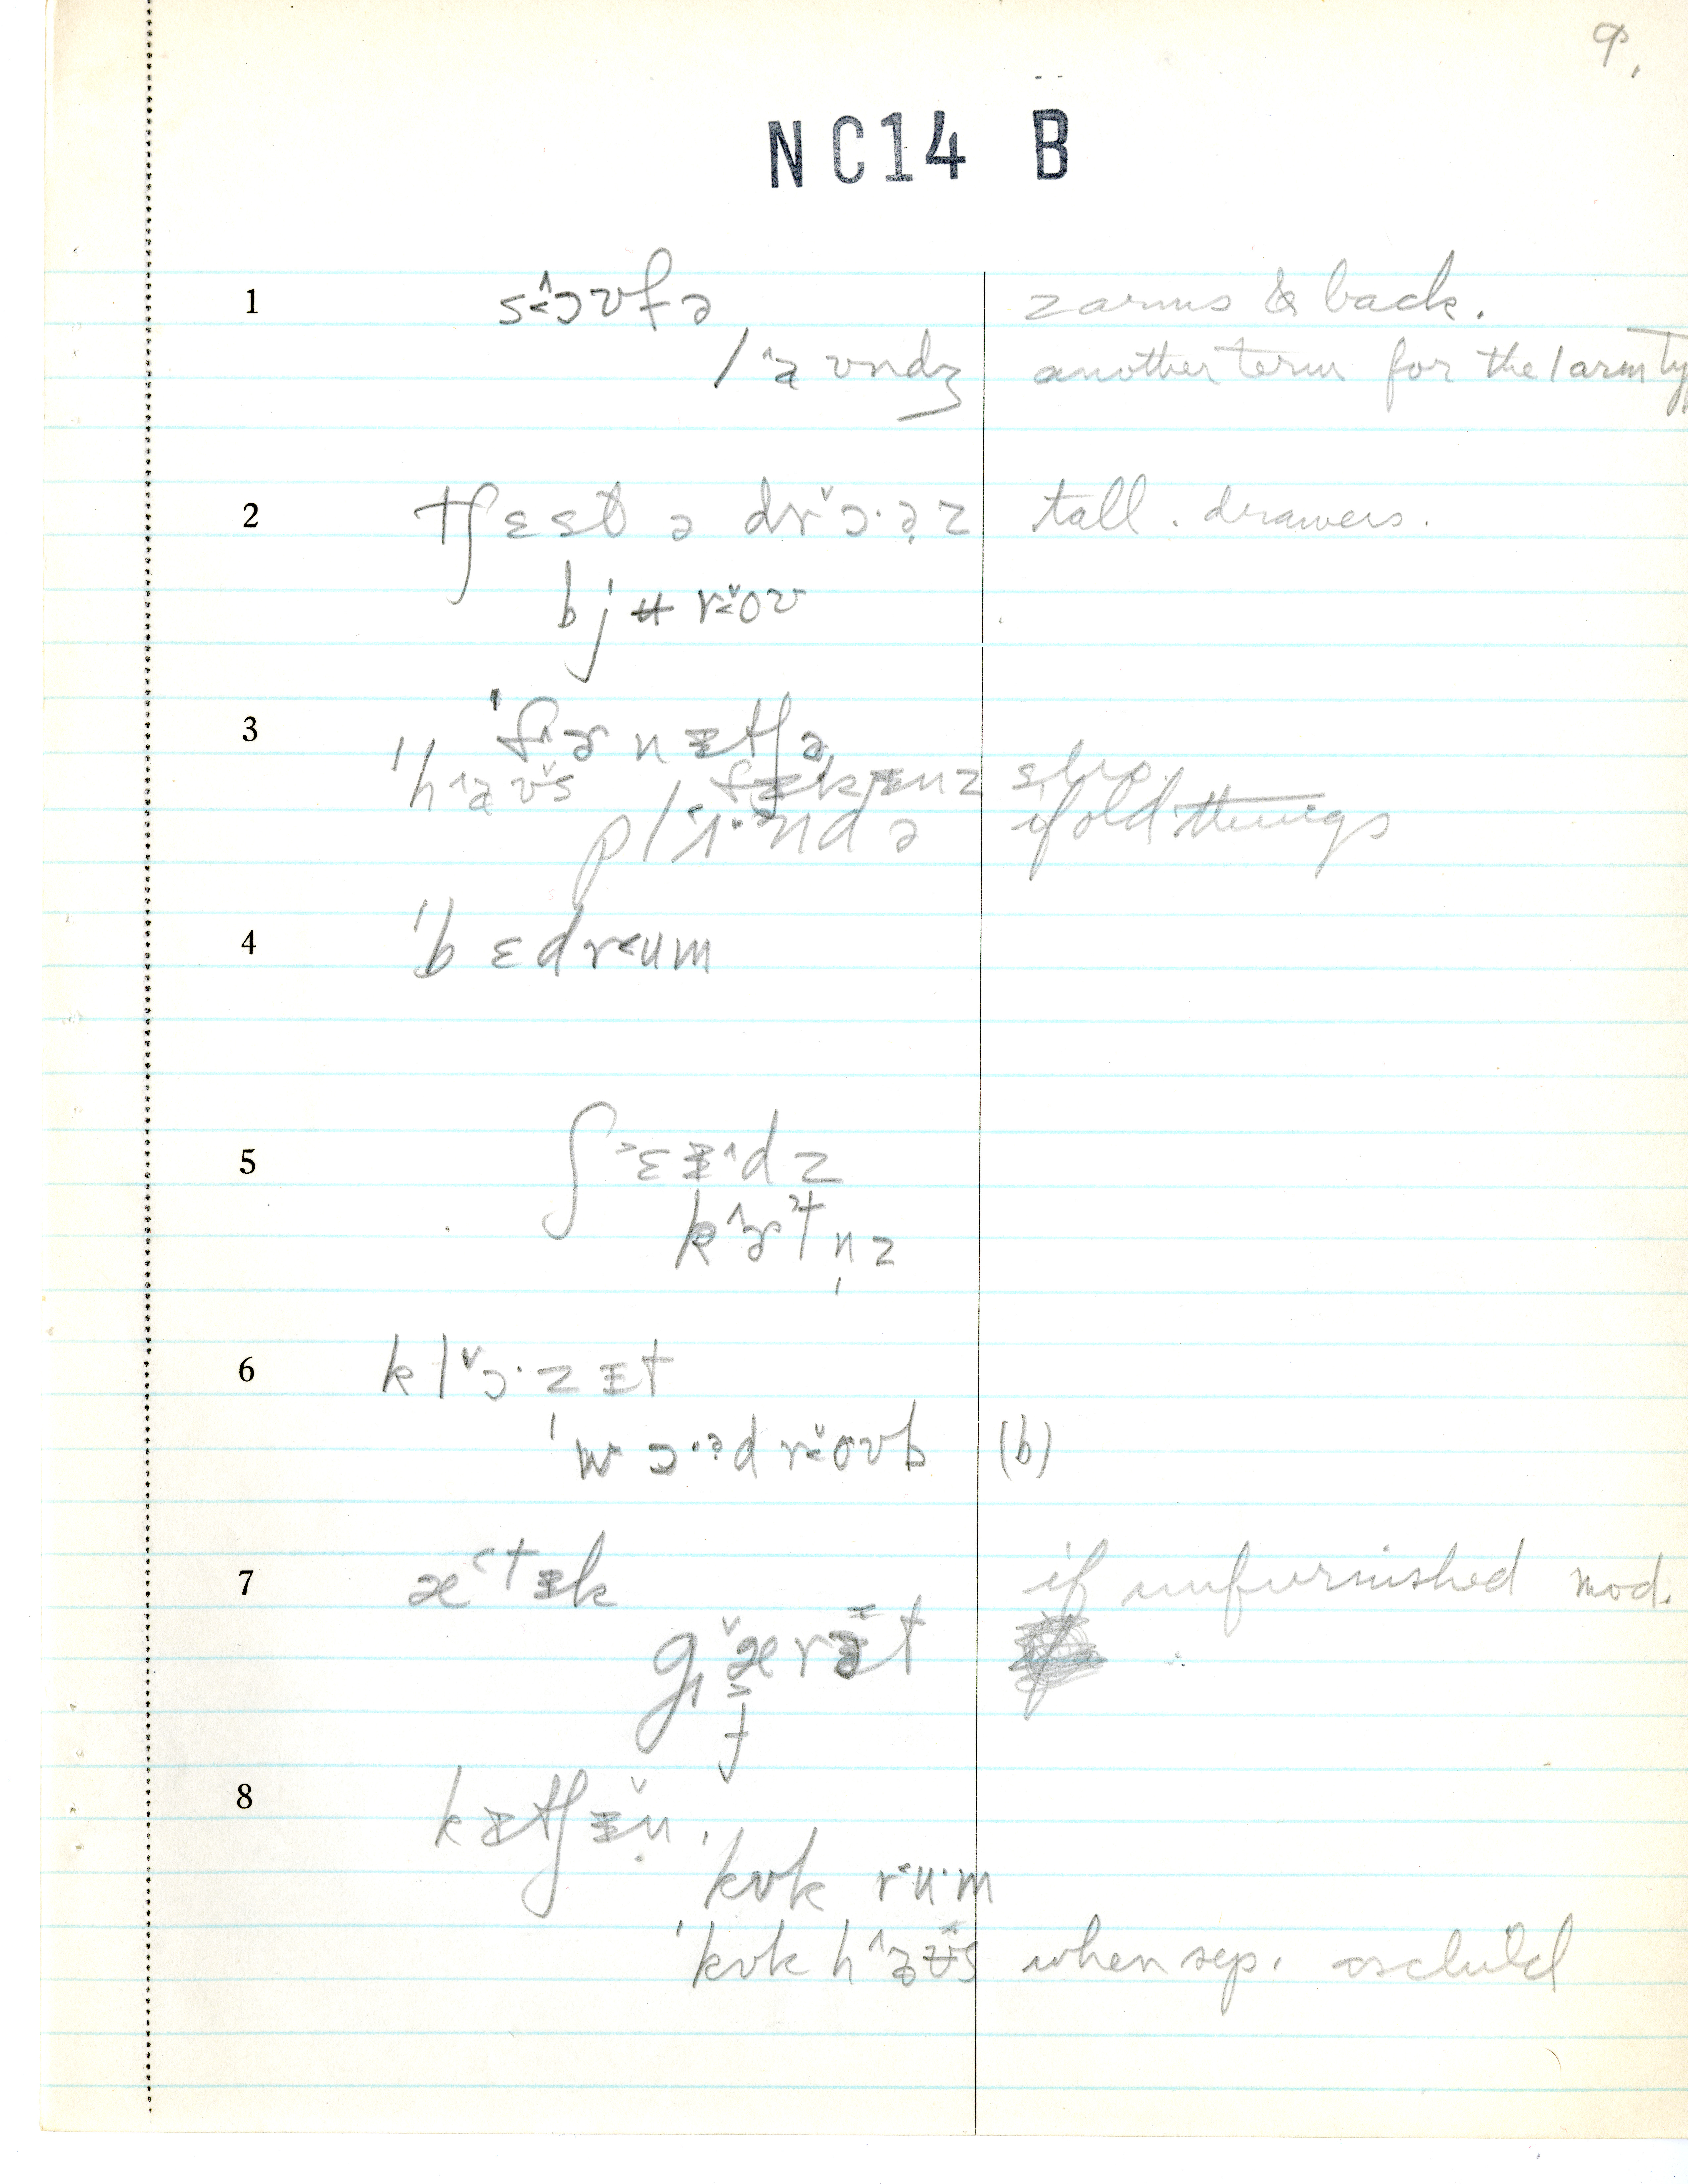 9.
NC14 B
1 s<ɔʊfə 2 arms & back.
laʊndʒ another term for the 1 arm ty
2 tʃɛst ə drɔ·ə̣z tall. drawers.
bjʉr<oʊ
3 ˈfɚnɪtʃə
ˈhaʊs fɪksɪnz
plʌ·ndə if old things
4 ˈbɛdr<um
5 ʃɛɪdz
kɚtn̩z
6 klɔ·zɪt
ˈwɔ·ə̣dr<oʊb (b)
7 ætɪk if unfurnished mod.
gærət
8 kɪtʃɪn
ˈkʊk r<u·m
ˈkʊk haʊs when sep. as child